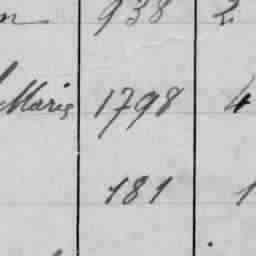 938 2
Marig 1798 4
181 1